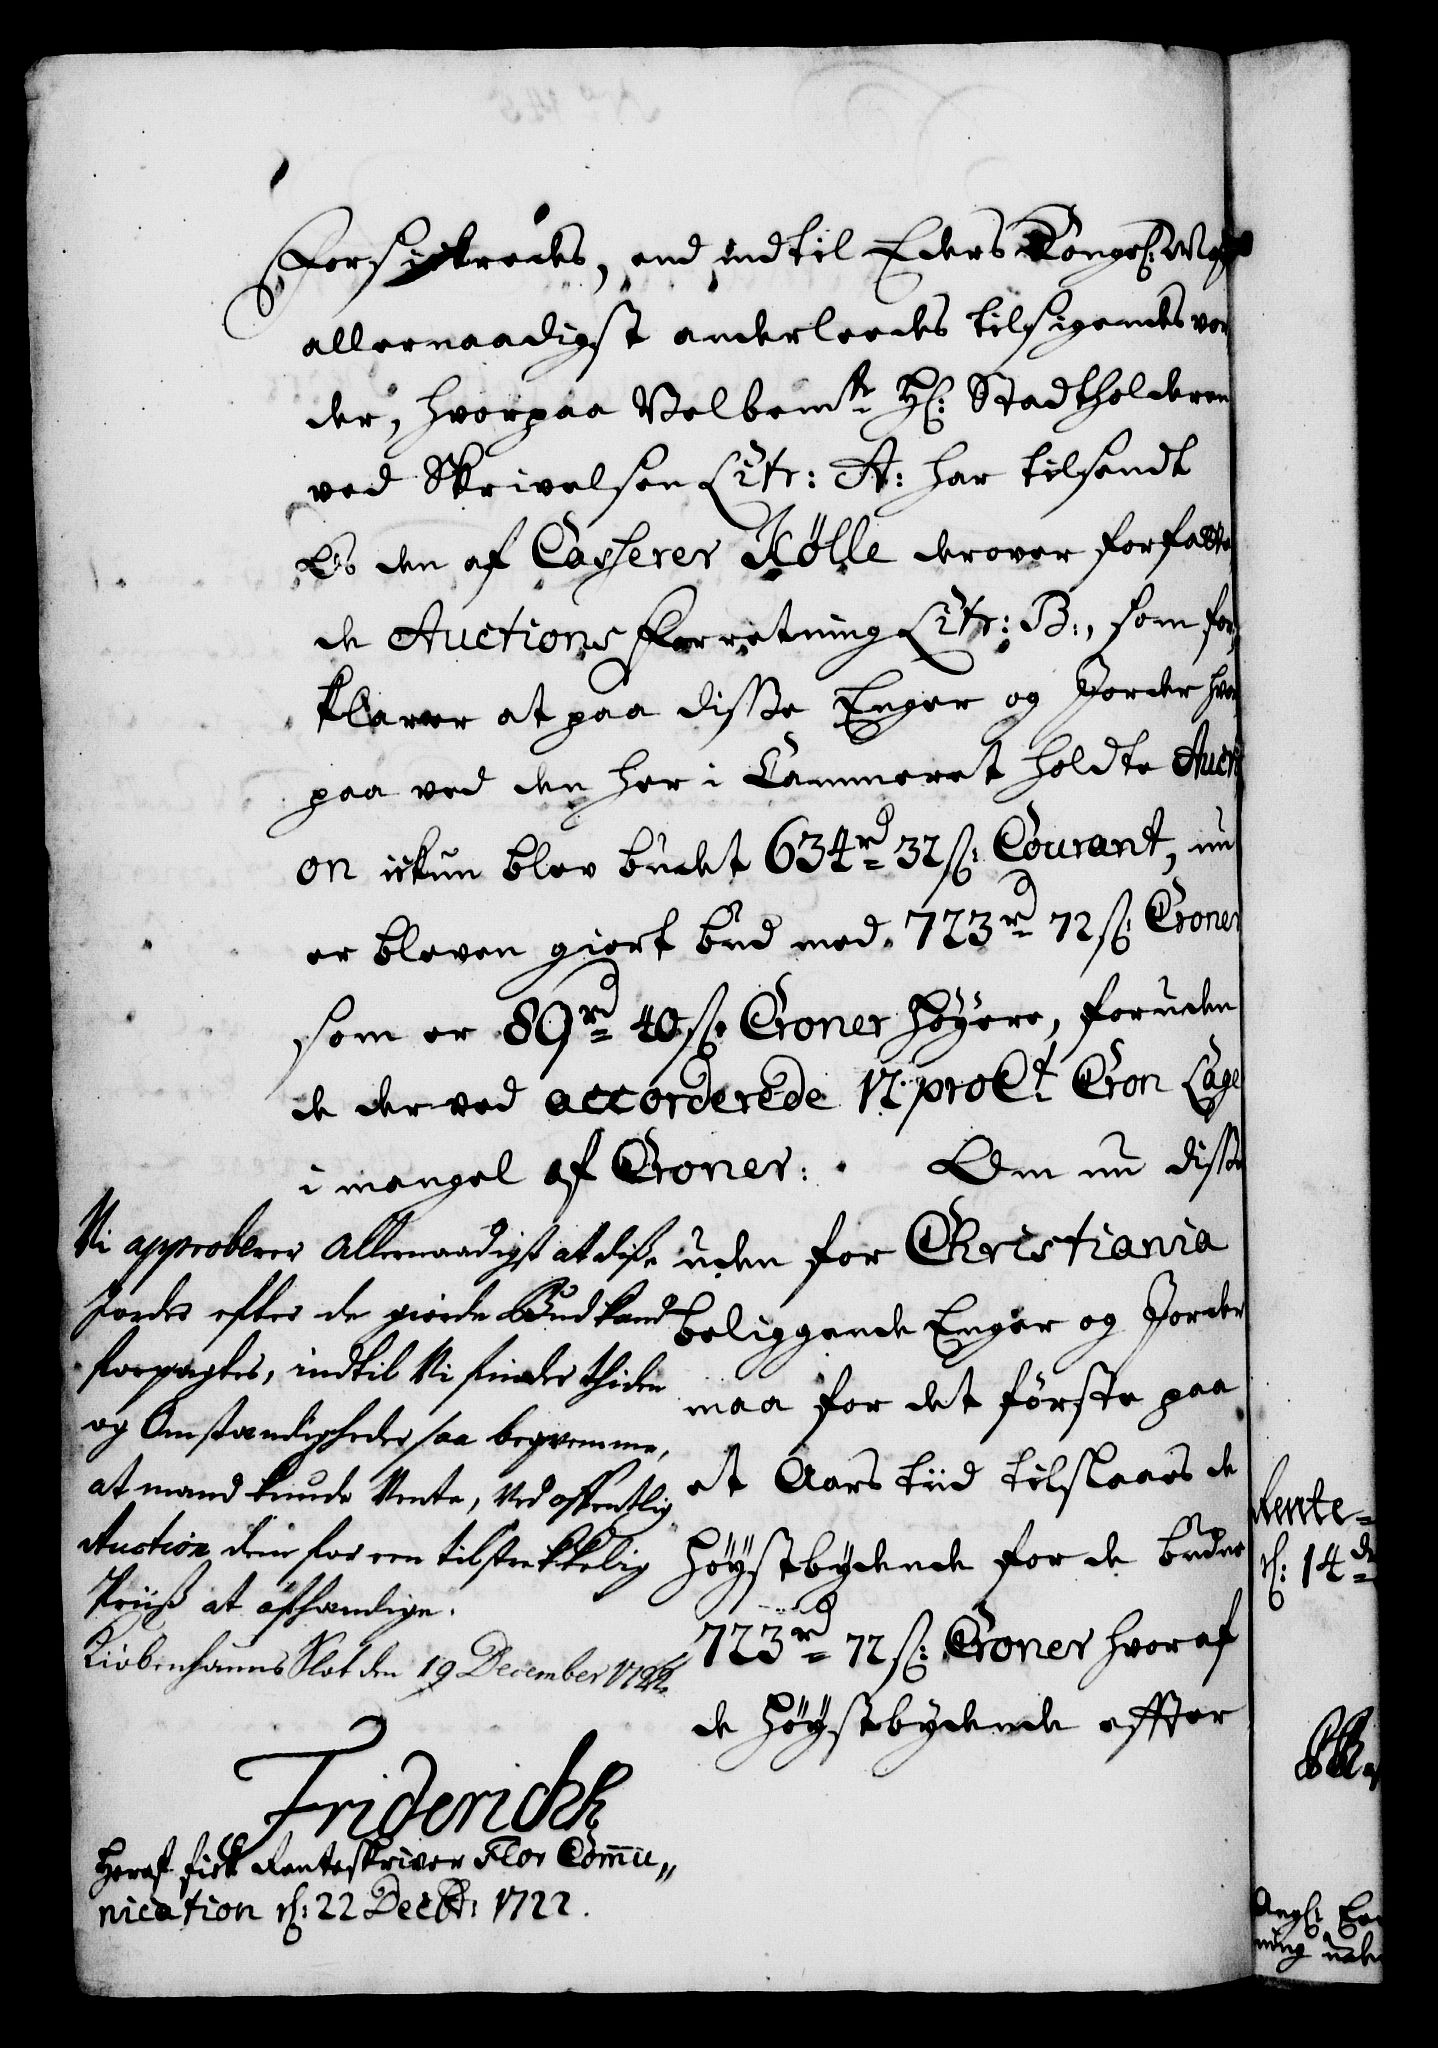 forsickredes, end indtil Eders Kongel: May
allernaadigst anderleedes tilsigendes vor
der, hvorpaa Velbemte Hr: Stadtholderen
ved Skrivelsen Litr: A: har tilsendt
Os den af Casserer Kølle derover forfatte
de Auctions Forretning Litr: B:, som for
klarer at paa disse Enger og Jorder hvor
paa ved den her i Cammeret holdte Aucti
on ickun blev budet 634 rd 32 s: Courant, nu
er bleven giort bud med 723 rd 72 s: Croner
som er 89 rd 40 s: Croner höyere, foruden
de derved accorderede 12 pro Ct Cron Lage
i mangel af Croner: Om nu disse
uden for Christiania
beliggende Enger og Jorder
maa for det förste paa
et Aars tiid tilslaaes de
höystbydende for de budne
723 rd 72 s: Croner hvoraf
de höystbydende effter
Vi approberer allernaadigst at disse
Jorder efter de giorde Bud kand
forpagtes, indtil Vi finder tiden
og Omstændigheder saa beqvemme,
at mand kunde vente, ved offentlig
Auction dem for een tilstrekkelig
Priiß at afhændige.
Kiøbenhauns Slot den 19 December 1722.
Friderich R
Heraf fick Renteskriver Flor Commu„
nication d: 22 Decbr: 1722.
Rente=
d: 14 de